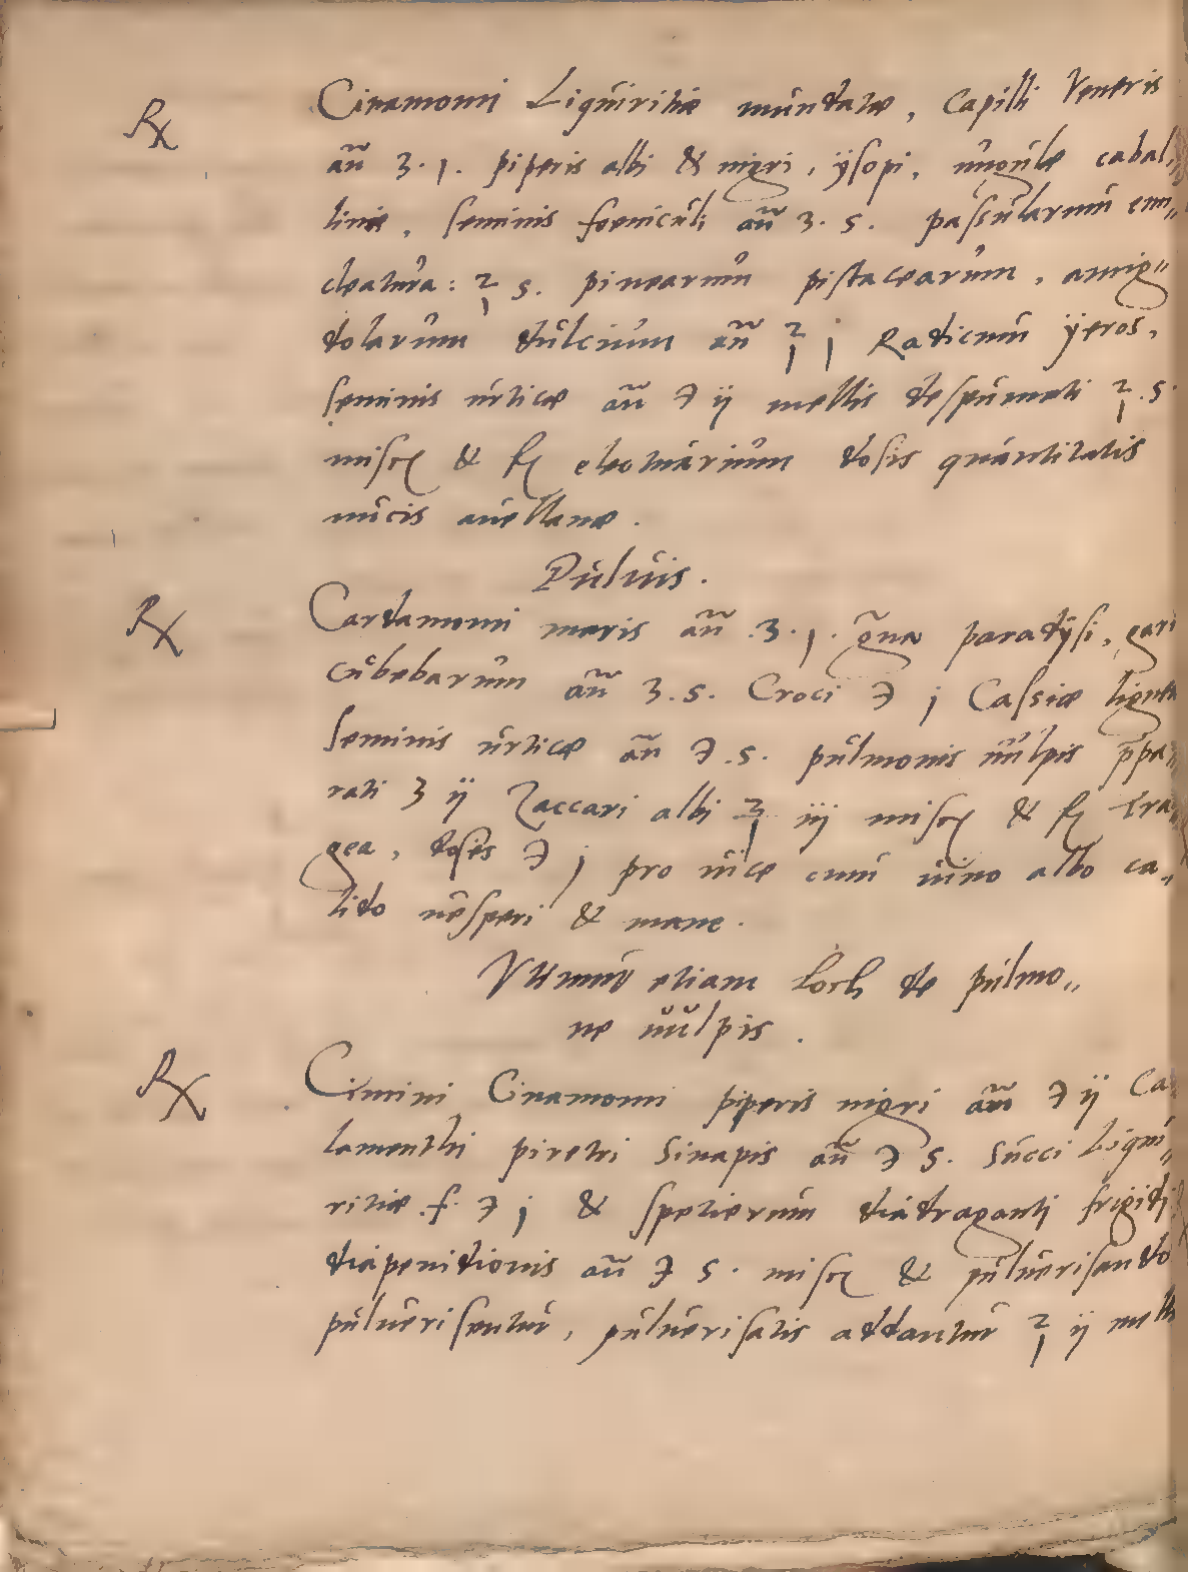 ℞ Cinamomi Liquiritiæ mundatæ, Capilli Veneris
añ ʒ. j. piperis albi & nigri, ÿsopi, ungulæ cabal„
linæ, seminis foeniculi añ ʒ. s. passularum enu„
cleatura: ℥ s. pinearum pistacearum, amig„
dolarum dulcium añ ℥ j Radicum ÿeros,
seminis urticæ añ ℈ ij mellis despumati ℥. s.
misce & f electuarium dosis quantitatis
nucis auellanæ.
Puluis.
℞ Cardamomi maris añ .ʒ. j. g̃na paradÿsi, gari
cubebarum añ ʒ. s. Croci ℈ j Cassiæ lignea
seminis urticæ añ ℈ .s. pulmonis uulpis p̄pa„
rati ʒ ij Zaccari albi ℥ iij misce & f Tra„
gea, dosis ℈ j pro uice cum uino albo ca„
lido uesperi & mane.
Vtimur etiam Loch de pulmo„
ne uulpis.
℞ Cimini, Cinamomi piperis nigri añ ℈ ij Ca
lamenthi piretri Sinapis añ ℈ s. Succi Liqui„
ritiæ .f. ℈ j & spetierum diadraganti frigidi
diapenidionis añ ℈ s. misce & puluerisando
puluerisentur, puluerisatis addantur ℥ ij mell